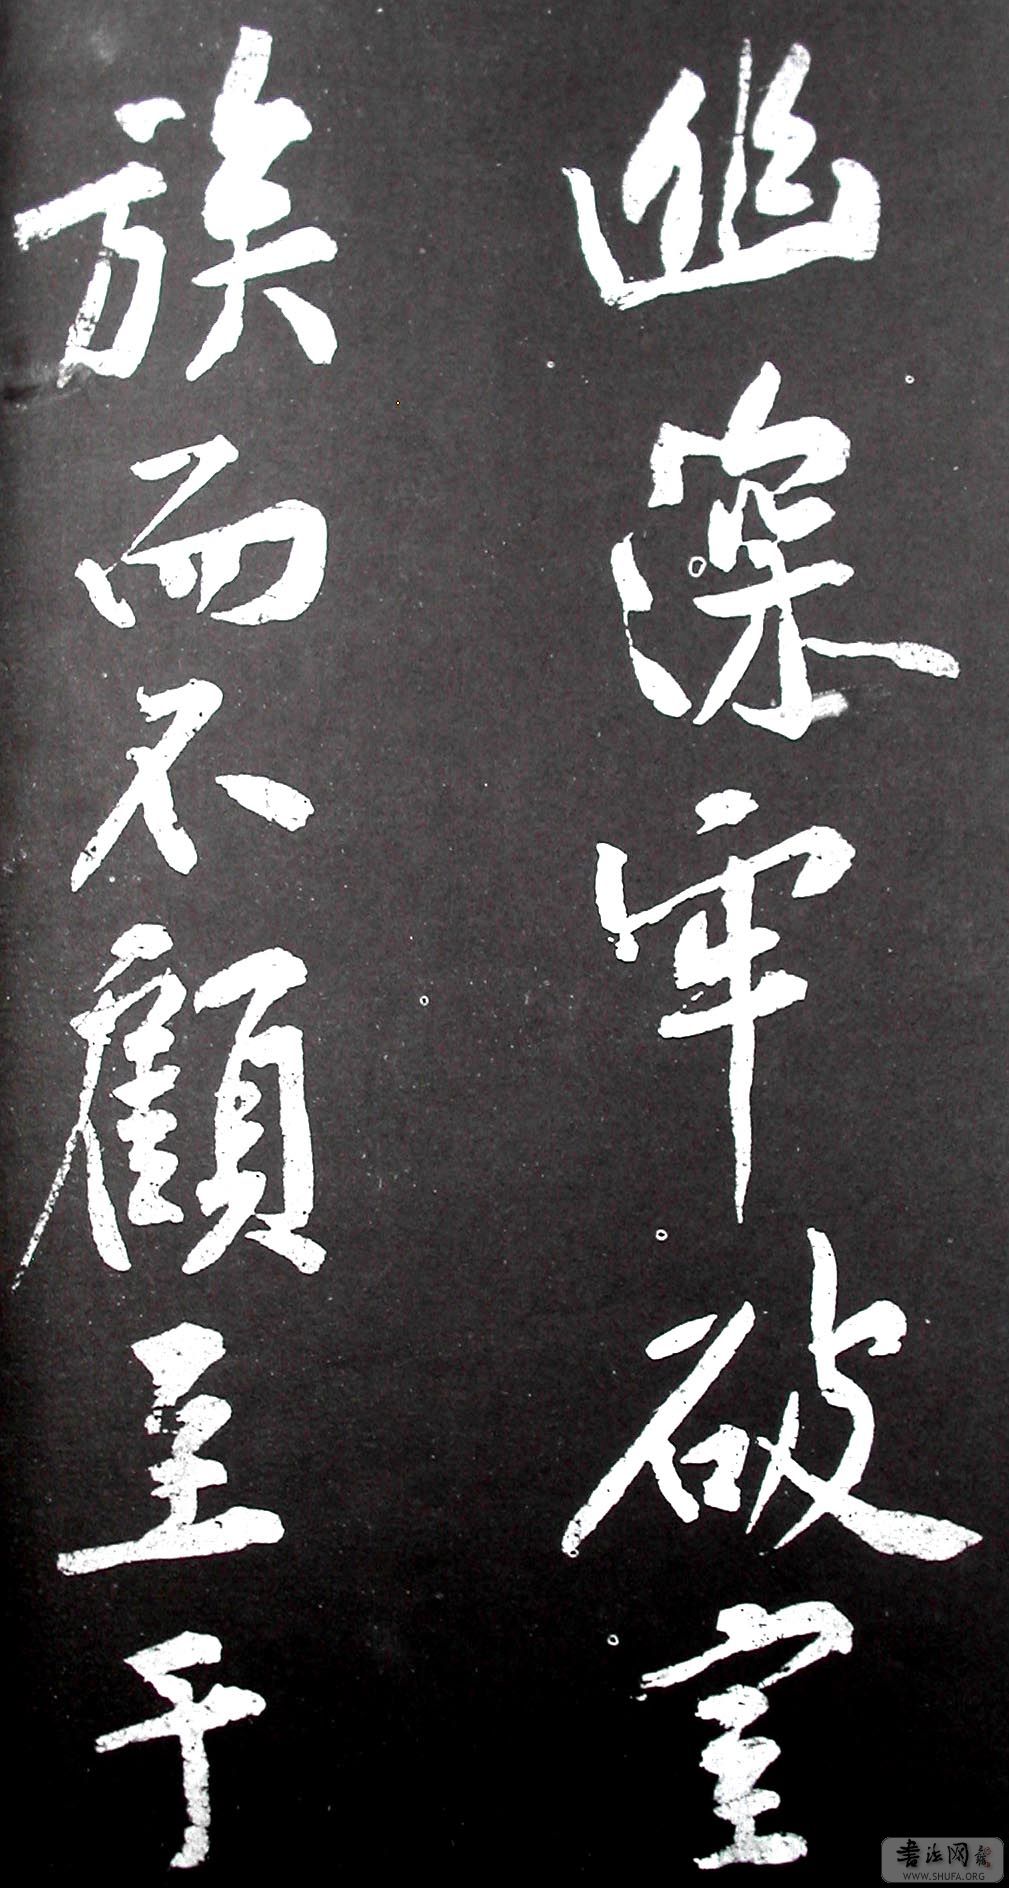 幽深牢破室
族而不顧至于
書法网
WWW.SHUFA.ORG